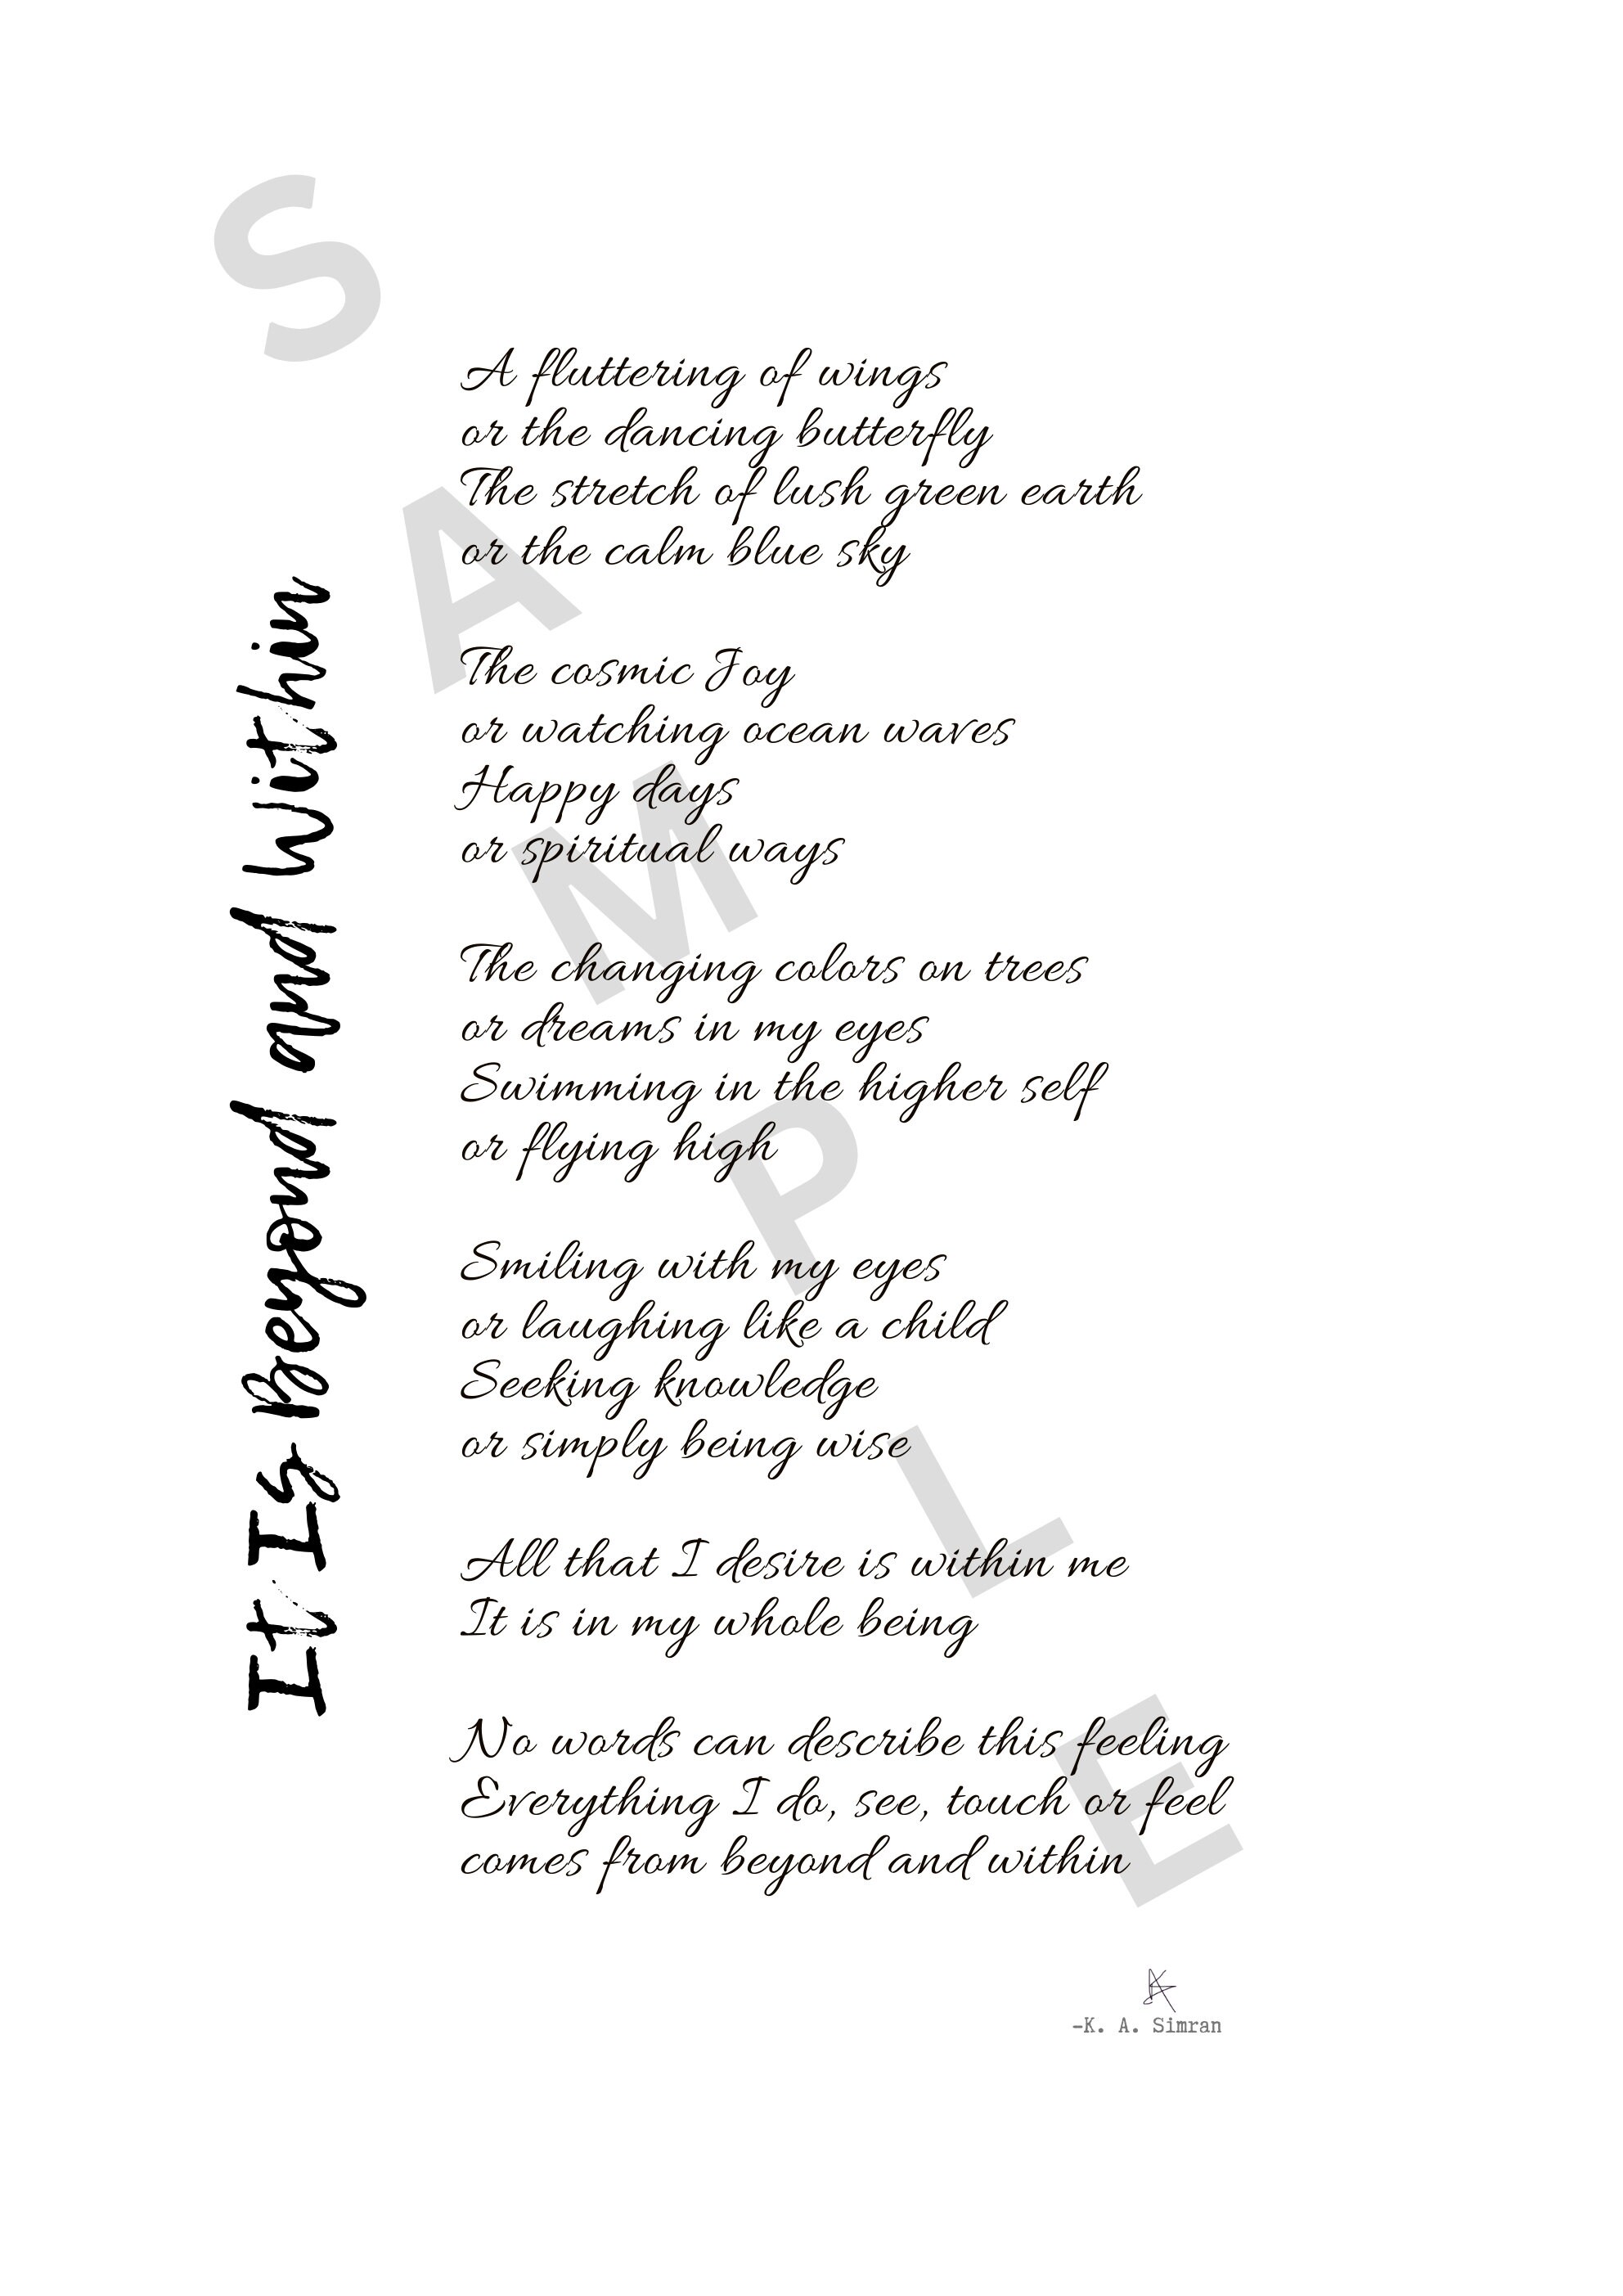 SAMPLE
It Is Beyond and Within
A fluttering of wings
or the dancing butterfly
The stretch of lush green earth
or the calm blue sky
The cosmic Joy
or watching ocean waves
Happy days
or spiritual ways
The changing colors on trees
or dreams in my eyes
Swimming in the higher self
or flying high
Smiling with my eyes
or laughing like a child
Seeking knowledge
or simply being wise
All that I desire is within me
It is in my whole being
No words can describe this feeling
Everything I do, see, touch or feel
comes from beyond and within
-K. A. Simran